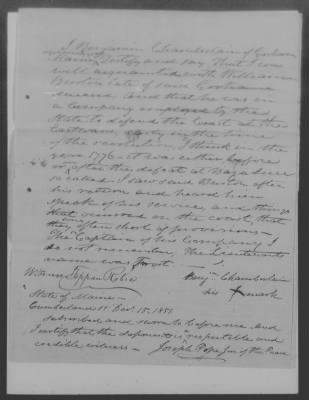 I Benjamin Chamberlain of Gorham
Maine testify and say that I was
well acquainted with William
Burton late of said
deceased, and that he was in
a Company employed by the
State to defend the Coast at the
Eastward, early in the time
of the revolution, I think in the
year 1776 it was either before
or after the defeat at Bagaduce
so called. I saw said Burton after
his return and heard him
speak of his service, and things
that occurred on the coast, that
they often short of provisions -
The Captain of his Company I
do not remember, The Lieutenants
name was Frost.
Witness Toppan Robie
Benjn Chamberlain
his X mark
State of Maine -
Cumberland ss Dec. 15. 1851
subscribed and sworn to before me, and
I certify that the deponent is respectable and
credible witness - Joseph Pope Jus of the Peace